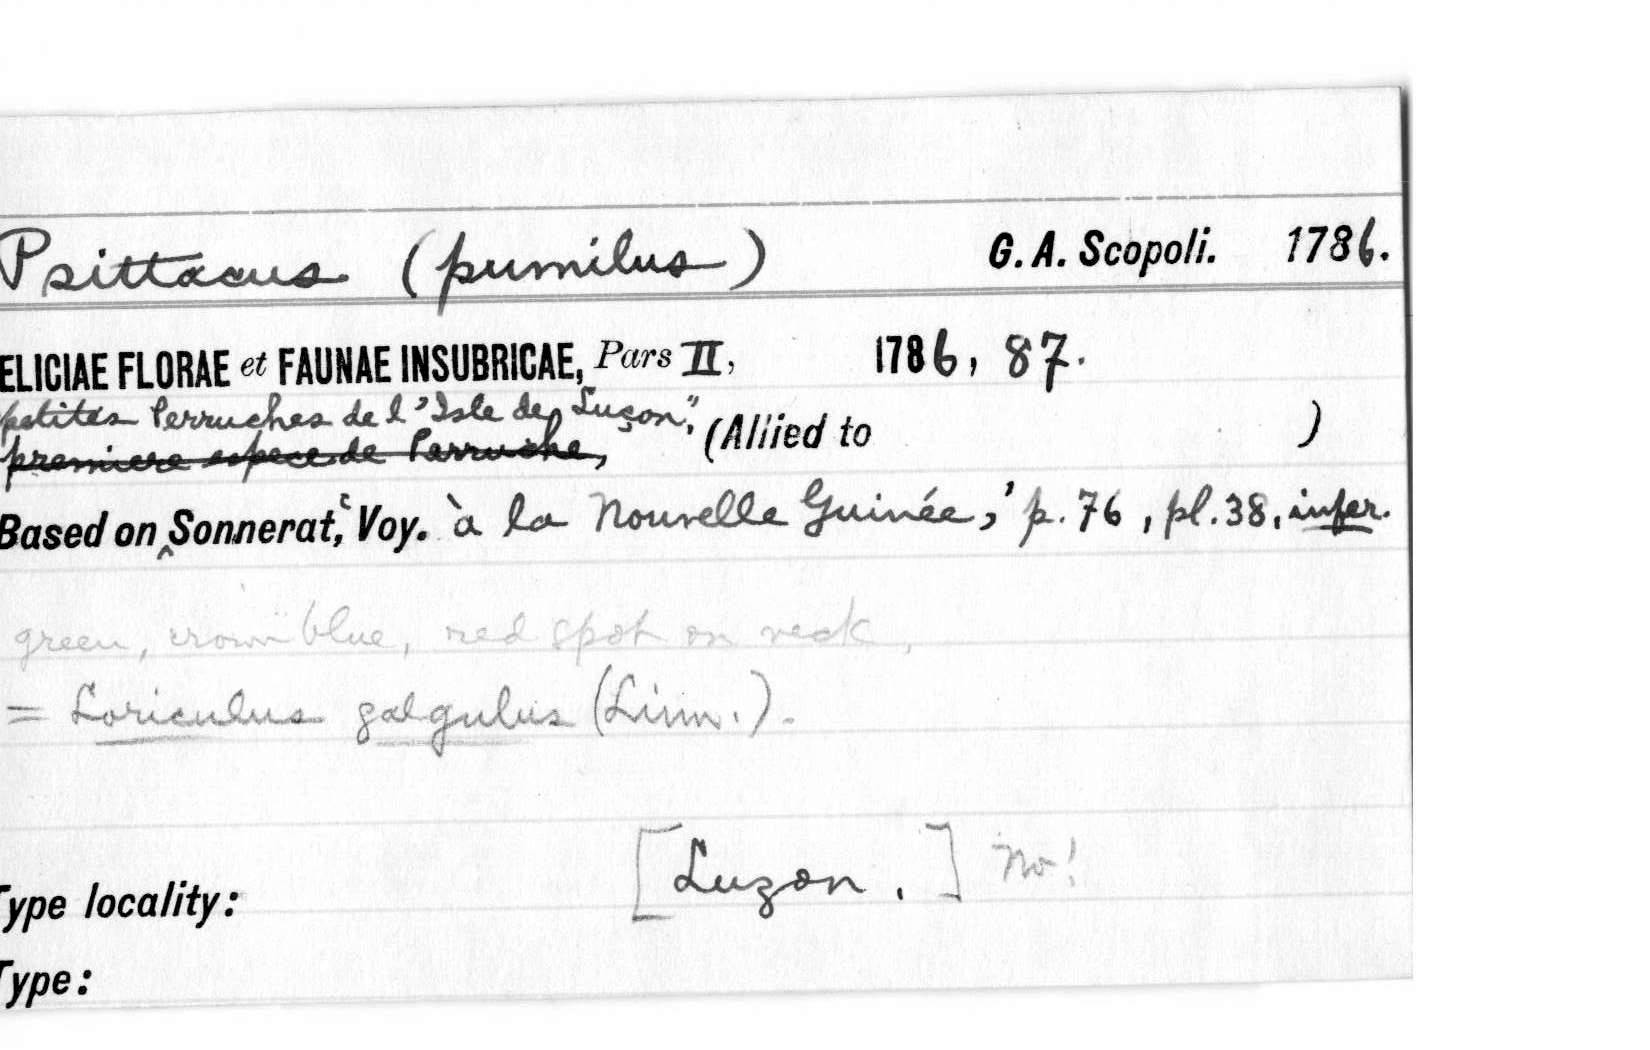 Psittacus (pumilus) G. A. Scopoli. 1786.
ELICIAE FLORAE et FAUNAE INSUBRICAE, Pars II, 1786, 87.
petites Perruches de l'Isle de Luçon", (Allied to )
premiere espece de Parruche,
Based on Sonnerat, 'Voy. à la Nouvelle Guinée,' p. 76, pl. 38, infer.
green, crown blue, red spot on neck,
= Loriculus galgulus (Linn.).
Type locality: [Luzon.] No!
Type: